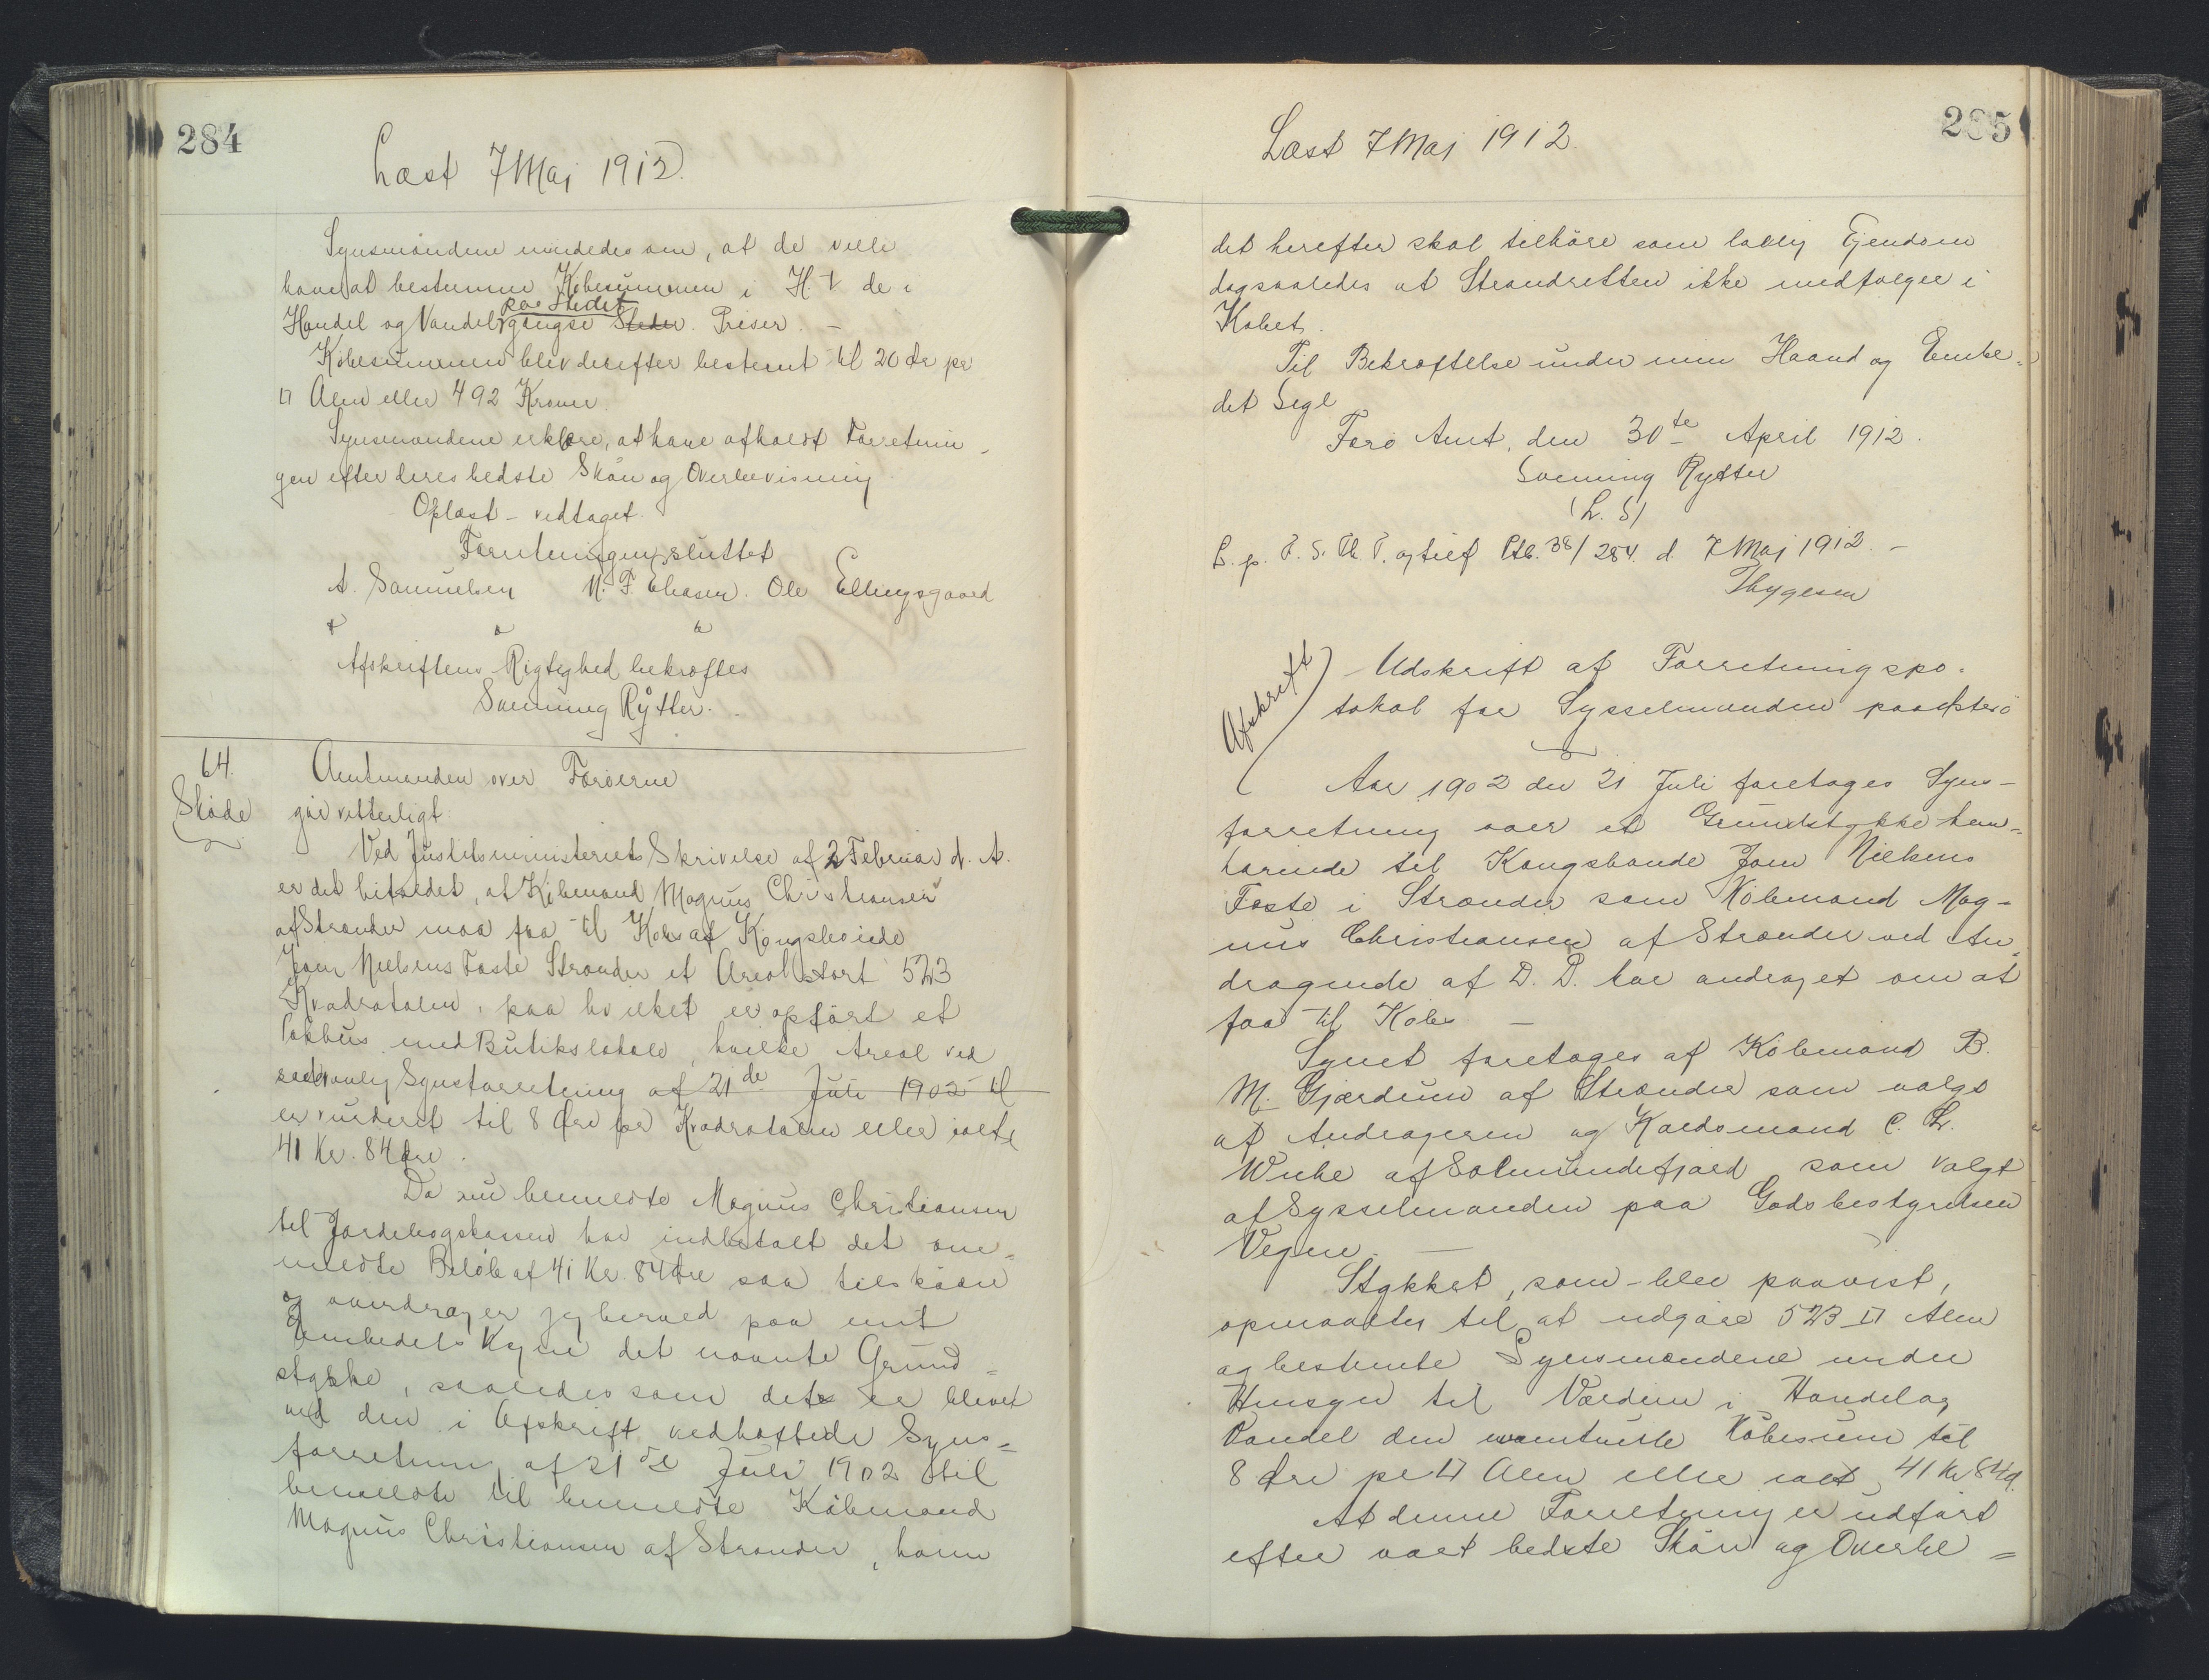 284
Læst 7 Maj 1912.
Synsmændene mindedes om, at de ville
have at bestemme Købesummen i H. t. de i
paa Stedet
Handel og Vandel gængse Steder Priser. -
Købesummen blev derefter bestemt til 20 Øre pr
□ Alen eller 492 Kroner.
Synsmændene erklære, at have afholdt Forretnin-
gen efter deres bedste Skön og Overbevisning
Oplæst - vedtaget.
Forretningen sluttet
A. Samuelsen M. F. Eliasen. Ole Ellingsgaard
Afskriftens Rigtighed bekræftes
Svenning Rytter.
64.
Skøde
Amtmanden over Færøerne
gør vitterligt:
Ved Justitsministeriets Skrivelse af 2 Februar d. A.
er det bifaldet, at Købmand Magnus Christiansen
af Strænder maa faa til Købs af Kongsbonde
Joen Nielsens Fæste Strænder et Areal stort 523
Kvadratalen, paa hvilket er opført et
Pakhus med Butikslokale, hvilke Areal ved
sædvanlig Synsforretning af 21de Juli 1902 til
er vurderet til 8 Øre per Kvadratalen eller ialt
41 Kr. 84 Øre.
Da nu bemeldte Magnus Christiansen
til Jordebogskassen har indbetalt det om-
meldte Beløb af 41 Kr. 84 Øre saa tilskøder
og overdrager jeg herved paa mit
Embedets Vegne det nævnte Grund=
stykke, saaledes som dets er blevet
ved den i Afskrift vedhæftede Syns=
forretning af 21de Juli 1902 til
bemeldte til bemeldte Købmand
Magnus Christiansen af Strænder, hvem
285
Læst 7 Maj 1912.
det herefter skal tilhöre som lovlig Ejendom
dogsaaledes at Strandretten ikke medfølger i
Købet.
Til Bekræftelse under min Haand og Embe-
det Segl
Færö Amt, den 30te April 1912.
Svenning Rytter
(L. S)
L. p. F. S. Th. P. og tilf Ptk. 38/284. d. 7 Maj 1912. -
Thygesen
Afskrift
Udskrift af Forretningspro-
tokol for Sysselmanden paa Østerö
Aar 1902 den 21 Juli foretages Syns-
forretning over et Grundstykke hen-
hørende til Kongsbonde Joen Nielsens
Fæste i Strænder som Købmand Mag-
nus Christiansen af Strænder ved An-
dragende af D. D. har andraget om at
faa til Købs -
Synet foretages af Købmand B.
M. Gjærdum af Strænder som valgt
af Andrageren og Kaldsmand C. L.
Wiche af Solmundefjord som valgt
af Sysselmanden paa Godsbestyrelsen
Vegne. -
Stykket, som blev paavist,
opmaaltes til at udgøre 523 □ Alen
og bestemte Synsmændene under
Hensyn til Værdien i Handel og
Vandel den eventuelle Købesum til
8 Øre pr □ Alen eller ialt 41 Kr 84 Ø.
At denne Forretning er udført
efter vort bedste Skön og Overbe =